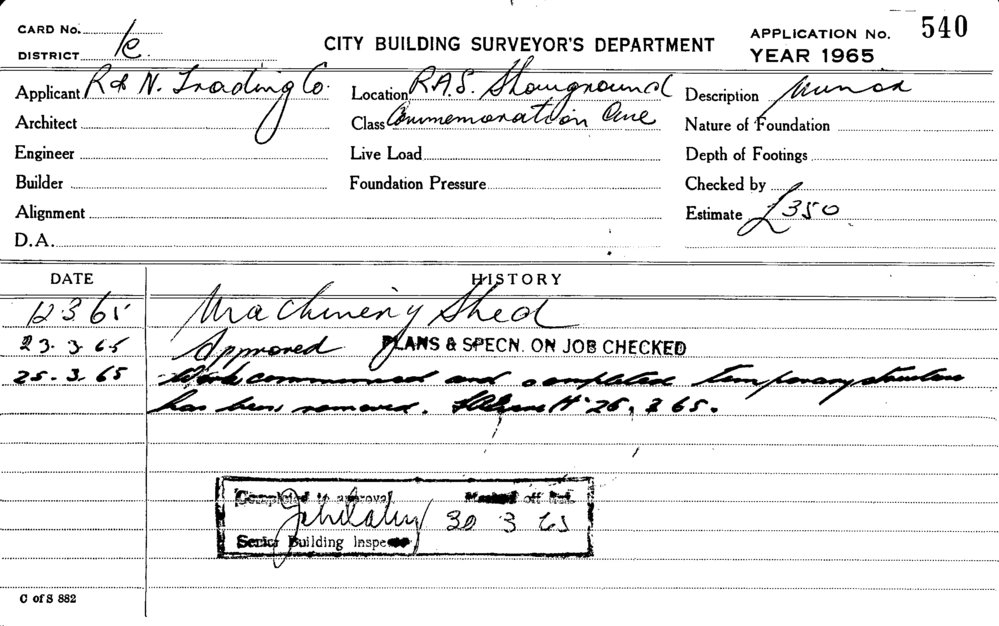 CARD No.
DISTRICT 1c.
CITY BUILDING SURVEYOR'S DEPARTMENT
APPLICATION No. 540
YEAR 1965
Applicant R & N. Trading Co.
Location R.A.S. Showground
Description Minor
Architect
Class Commemoration Ave
Nature of Foundation
Engineer
Live Load
Depth of Footings
Builder
Foundation Pressure
Checked by
Alignment
Estimate £350
D.A.
DATE
HISTORY
12 3 65 Machinery Shed
23.3.65 Approved PLANS & SPECN. ON JOB CHECKED
25-3.65 Work commenced and completed temporary structure
has been removed. 65.
Completed to approval Marked off list.
30 3 65
Senior Building Inspector
C of S 882